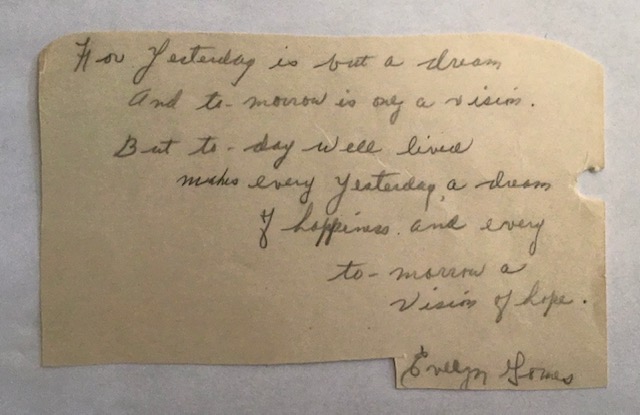 For Yesterday is but a dream
And to-morrow is only a vision.
But to-day well lived
makes every Yesterday a dream
of happiness and every
to-morrow a
vision of hope.
Evelyn Gomes